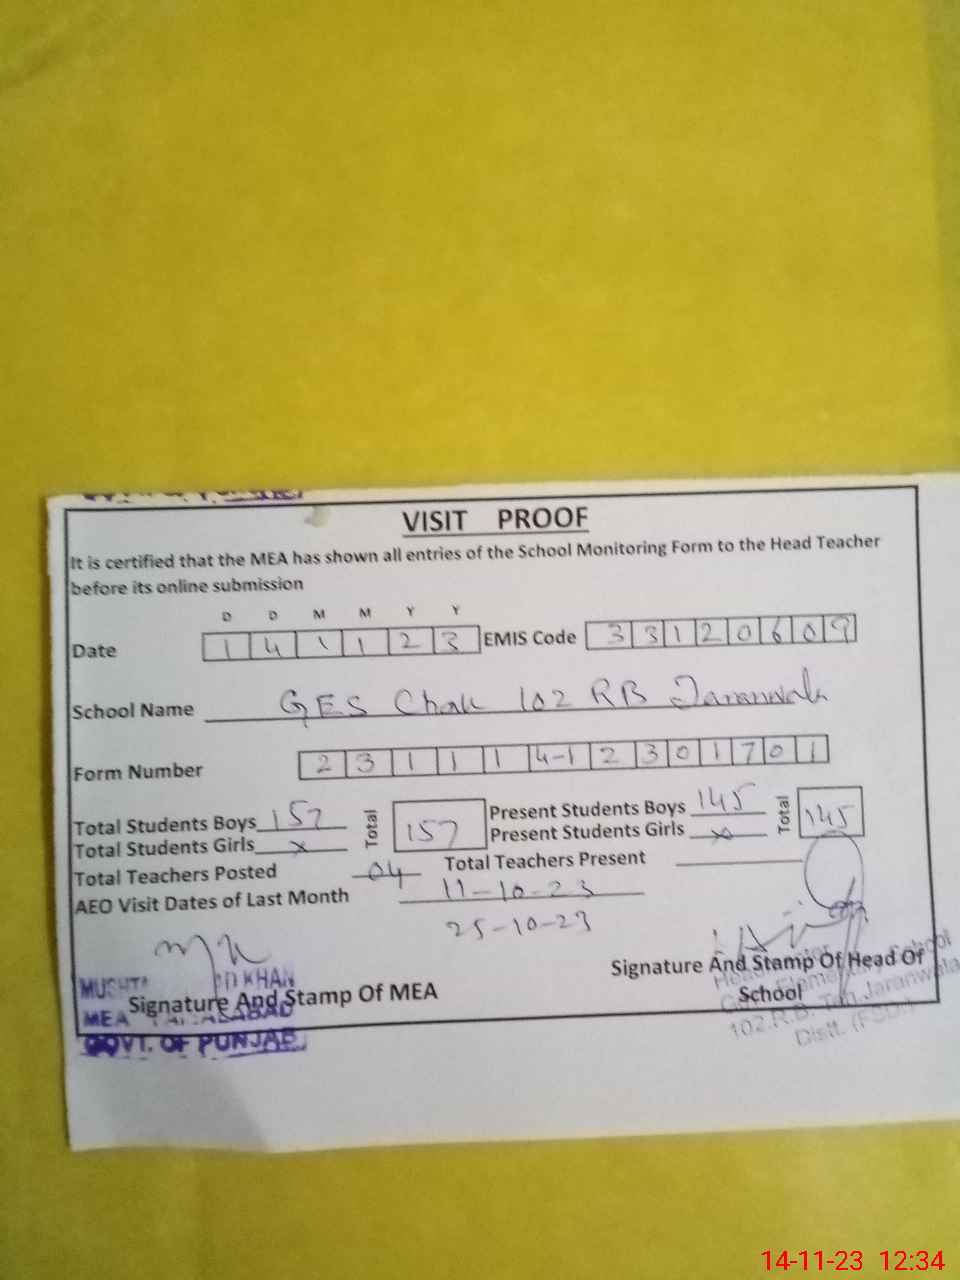 VISIT PROOF
It is certified that the MEA has shown all entries of the School Monitoring Form to the Head Teacher
before its online submission
D D M M Y Y
Date 1 4 1 1 2 3 EMIS Code 3 3 1 2 0 6 0 9
School Name GES Chak 102 RB Jaranwala
Form Number 2 3 1 1 1 4-1 2 3 0 1 7 0 1
Total Students Boys 157 Total 157 Present Students Boys 145 Total 145
Total Students Girls x Present Students Girls x
Total Teachers Posted 04 Total Teachers Present
AEO Visit Dates of Last Month 11-10-23
25-10-23
KHAN
Signature And Stamp Of MEA
MEA
GOVT. OF PUNJAB
Signature And Stamp Of Head Of
School
102.R.B. Teh Jaranwala
Distt. (FSD.)
14-11-23 12:34